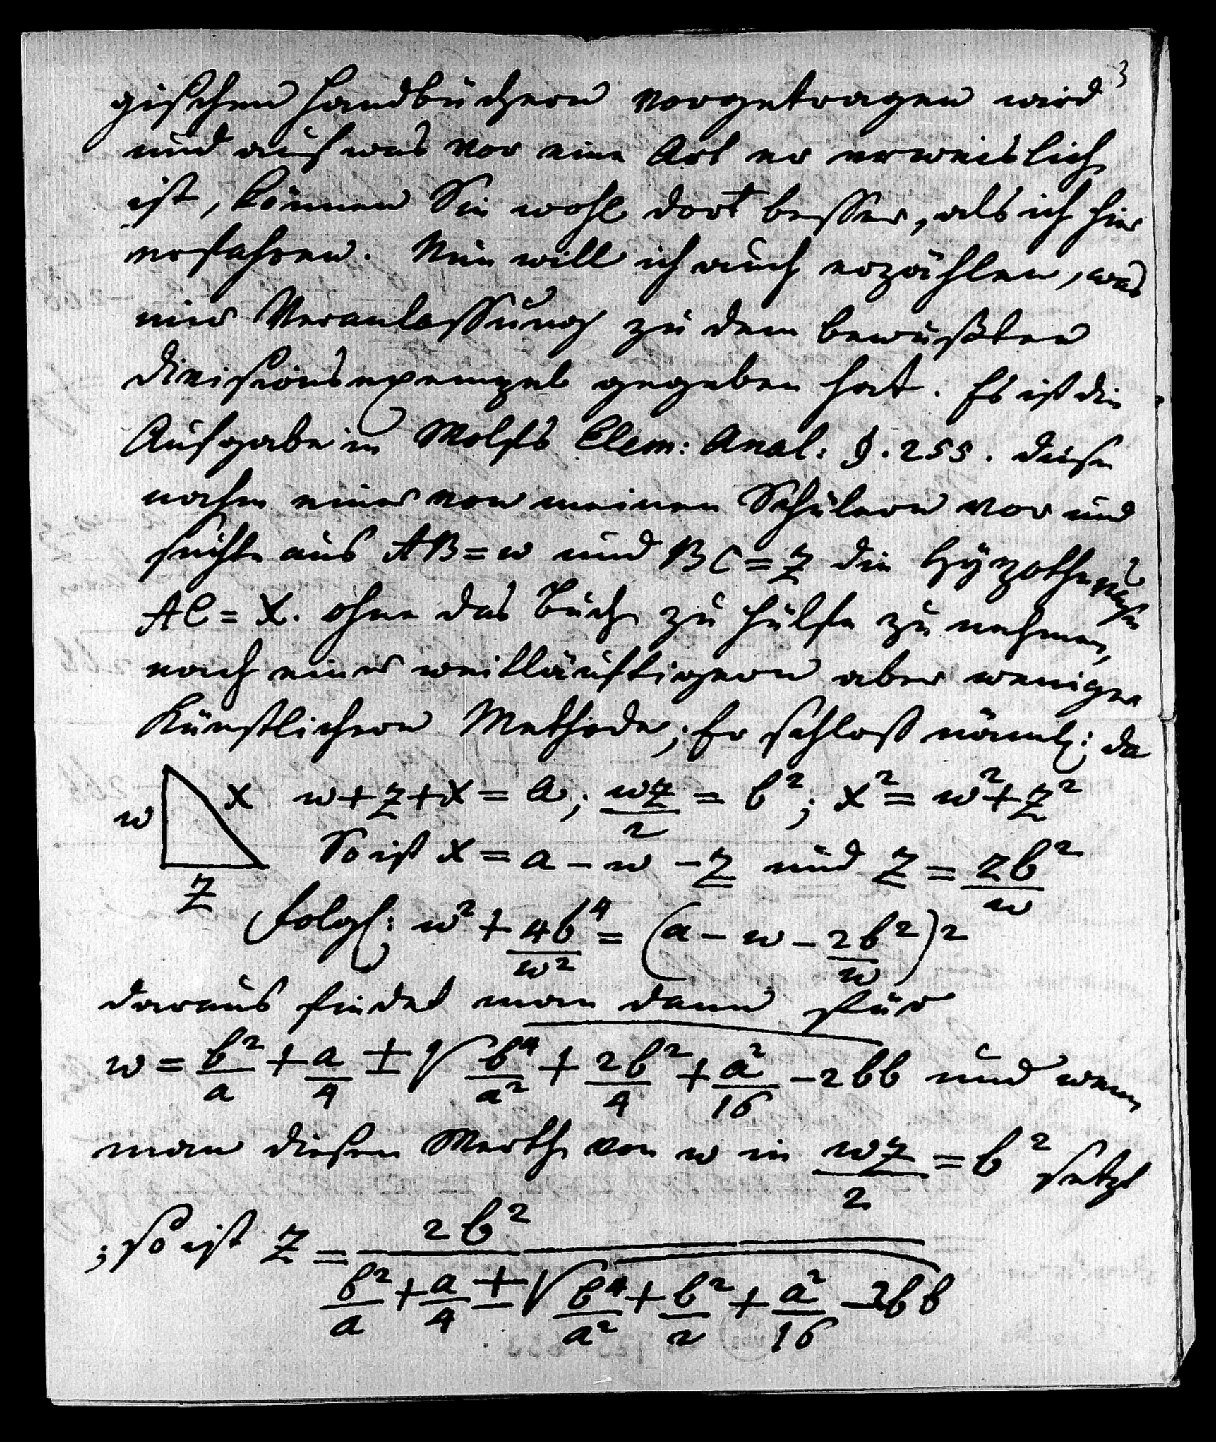 3
gischen Handbüchern vorgetragen wird
und auf was vor eine Art er erweislich
ist, können Sie wohl dort besser, als ich hier
erfahren. Nun will ich auch erzählen, was
mir Veranlassung zu dem bewußten
Divisionsexempel gegeben hat. Es ist die
Aufgabe in Wolfs Elem: Anal: §. 255. diese
nahm einer von meinen Schülern vor und
suchte aus AB = w und BC = z die Hypothenuse
AC = x. ohne das Buch zu Hülfe zu nehmen,
nach einer weitläuftigern aber weniger
künstlichern Methode; Er schloß näml: da
w x w + z + x = a; wz/2 = b²; x² = w² + z²
z So ist x = a − w − z und z = 2b²/w
folgl: w² + 4b⁴/w² = (a − w − 2b²/w)²
daraus findet man dann für
w = b²/a + a/4 ± √ b⁴/a² + 2b²/4 + a²/16 − 2bb und wenn
man diesen Werth von w in wz/2 = b² setzt
; so ist z = 2b² / b²/a + a/4 ± √ b⁴/a² + b²/2 + a²/16 − 2bb